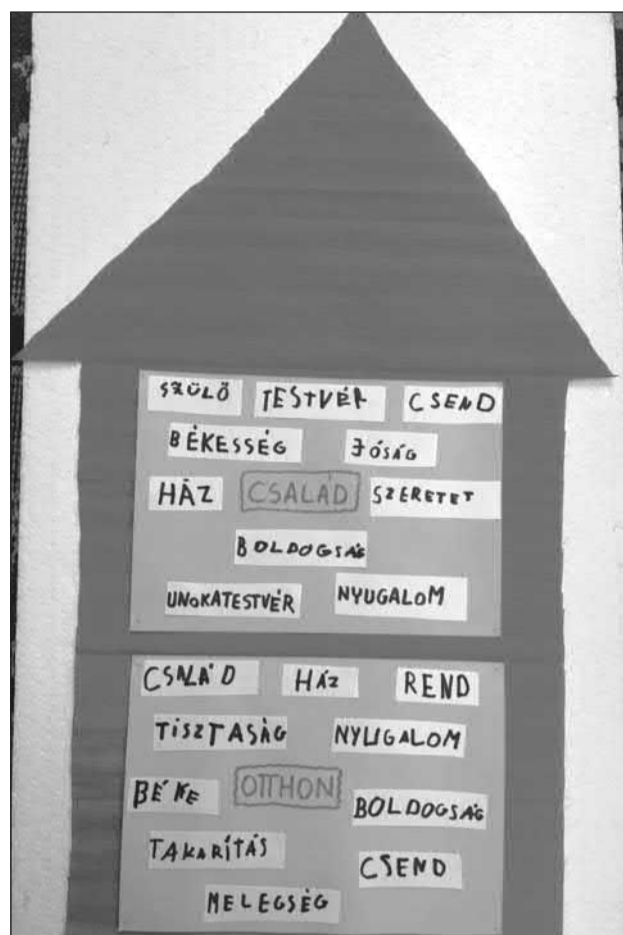 SZÜLŐ TESTVÉR CSEND
BÉKESSÉG JÓSÁG
HÁZ CSALÁD SZERETET
BOLDOGSÁG
UNOKATESTVÉR NYUGALOM
CSALÁD HÁZ REND
TISZTASÁG NYUGALOM
BÉKE OTTHON BOLDOGSÁG
TAKARÍTÁS CSEND
MELEGSÉG